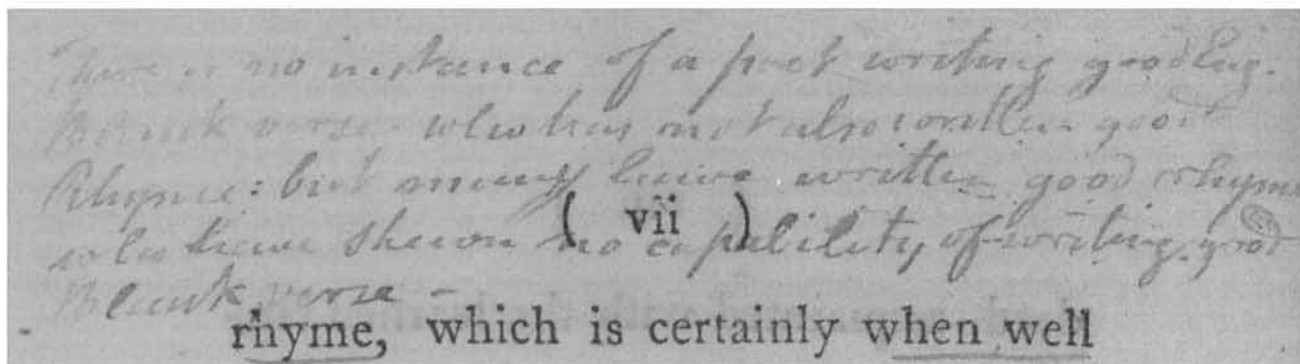 There is no instance of a poet writing good Eng.
Blank verse who has not also written good
Rhyme: but many have written good rhyme
( vii )
who have shewn no capability of writing good
Blank verse –
rhyme, which is certainly when well